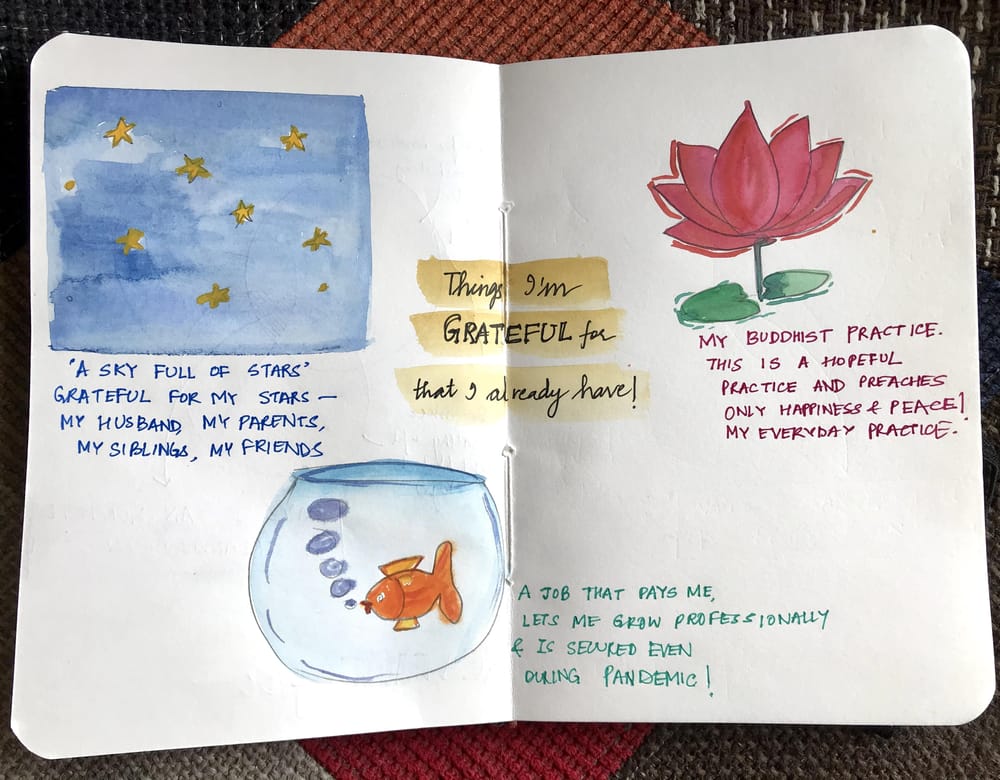 Things I'm
GRATEFUL for
that I already have!
'A SKY FULL OF STARS'
GRATEFUL FOR MY STARS —
MY HUSBAND, MY PARENTS,
MY SIBLINGS, MY FRIENDS
MY BUDDHIST PRACTICE.
THIS IS A HOPEFUL
PRACTICE AND PREACHES
ONLY HAPPINESS & PEACE!
MY EVERYDAY PRACTICE.
A JOB THAT PAYS ME,
LETS ME GROW PROFESSIONALLY
& IS SECURED EVEN
DURING PANDEMIC!